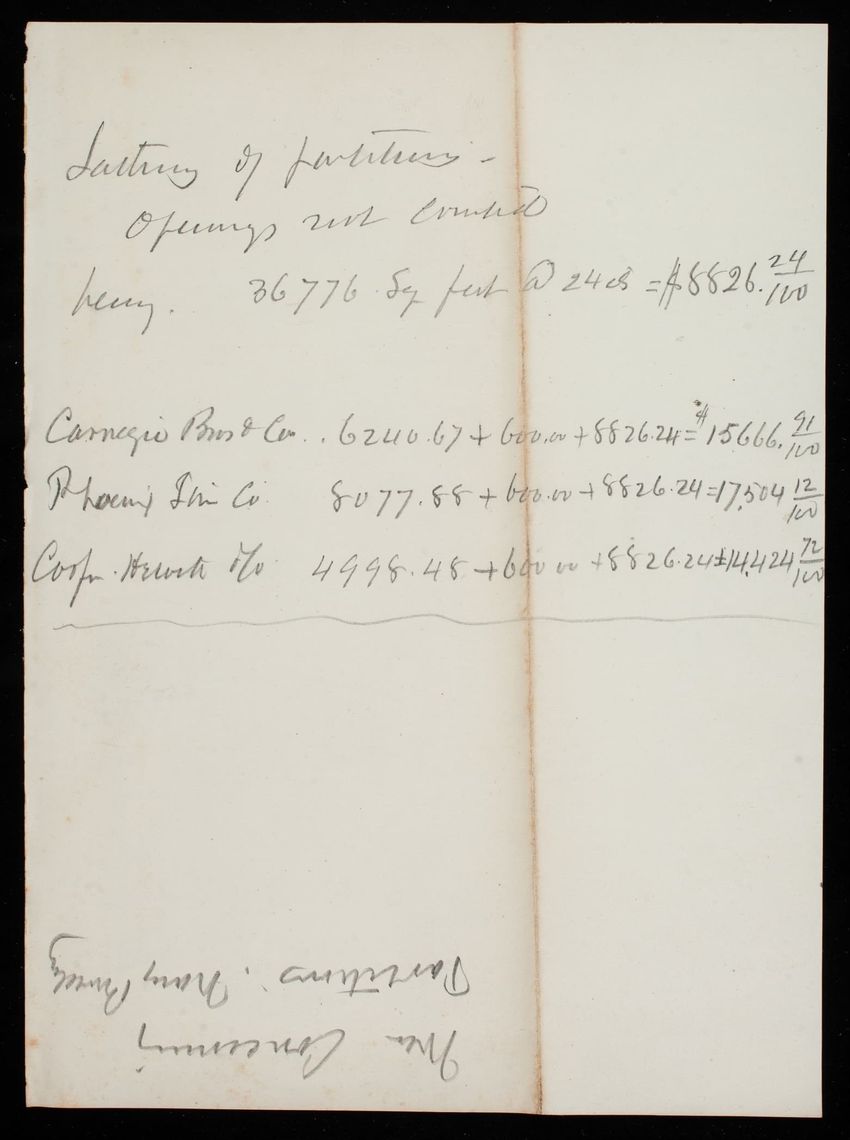 Lathing of partitions -
Openings not Counted
being. 36776 Sq feet @ 24 cts = $8826.24/100
Carnegie Bros & Co. . 6240.67 + 600.00 + 8826.24 = $15666.91/100
Phoenix Iron Co. 8077.88 + 600.00 + 8826.24 = 17,504 12/100
Coop. Hewitt & Co 4998.48 + 600 00 + 8826.24 = 14,424 72/100
Mem Concerning
Partitions.